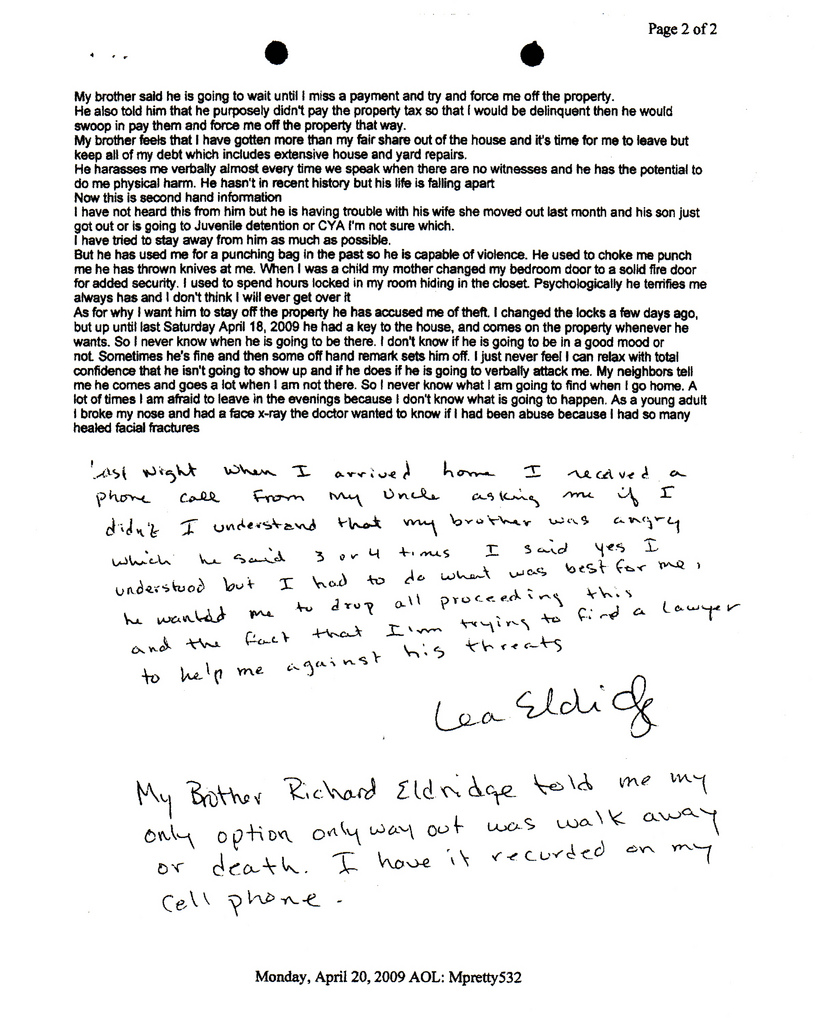 Page 2 of 2
My brother said he is going to wait until I miss a payment and try and force me off the property.
He also told him that he purposely didn't pay the property tax so that I would be delinquent then he would
swoop in pay them and force me off the property that way.
My brother feels that I have gotten more than my fair share out of the house and it's time for me to leave but
keep all of my debt which includes extensive house and yard repairs.
He harasses me verbally almost every time we speak when there are no witnesses and he has the potential to
do me physical harm. He hasn't in recent history but his life is falling apart
Now this is second hand information
I have not heard this from him but he is having trouble with his wife she moved out last month and his son just
got out or is going to Juvenile detention or CYA I'm not sure which.
I have tried to stay away from him as much as possible.
But he has used me for a punching bag in the past so he is capable of violence. He used to choke me punch
me he has thrown knives at me. When I was a child my mother changed my bedroom door to a solid fire door
for added security. I used to spend hours locked in my room hiding in the closet. Psychologically he terrifies me
always has and I don't think I will ever get over it
As for why I want him to stay off the property he has accused me of theft. I changed the locks a few days ago,
but up until last Saturday April 18, 2009 he had a key to the house, and comes on the property whenever he
wants. So I never know when he is going to be there. I don't know if he is going to be in a good mood or
not. Sometimes he's fine and then some off hand remark sets him off. I just never feel I can relax with total
confidence that he isn't going to show up and if he does if he is going to verbally attack me. My neighbors tell
me he comes and goes a lot when I am not there. So I never know what I am going to find when I go home. A
lot of times I am afraid to leave in the evenings because I don't know what is going to happen. As a young adult
I broke my nose and had a face x-ray the doctor wanted to know if I had been abuse because I had so many
healed facial fractures
last Night when I arrived home I received a
phone call From my Uncle asking me if I
didn't I understand that my brother was angry
which he said 3 or 4 times I said yes I
understood but I had to do what was best for me,
he wanted me to drop all proceeding this
and the fact that I'm trying to find a Lawyer
to help me against his threats
Lea Eldridge
My Brother Richard Eldridge told me my
only option only way out was walk away
or death. I have it recurded on my
Cell phone.
Monday, April 20, 2009 AOL: Mpretty532